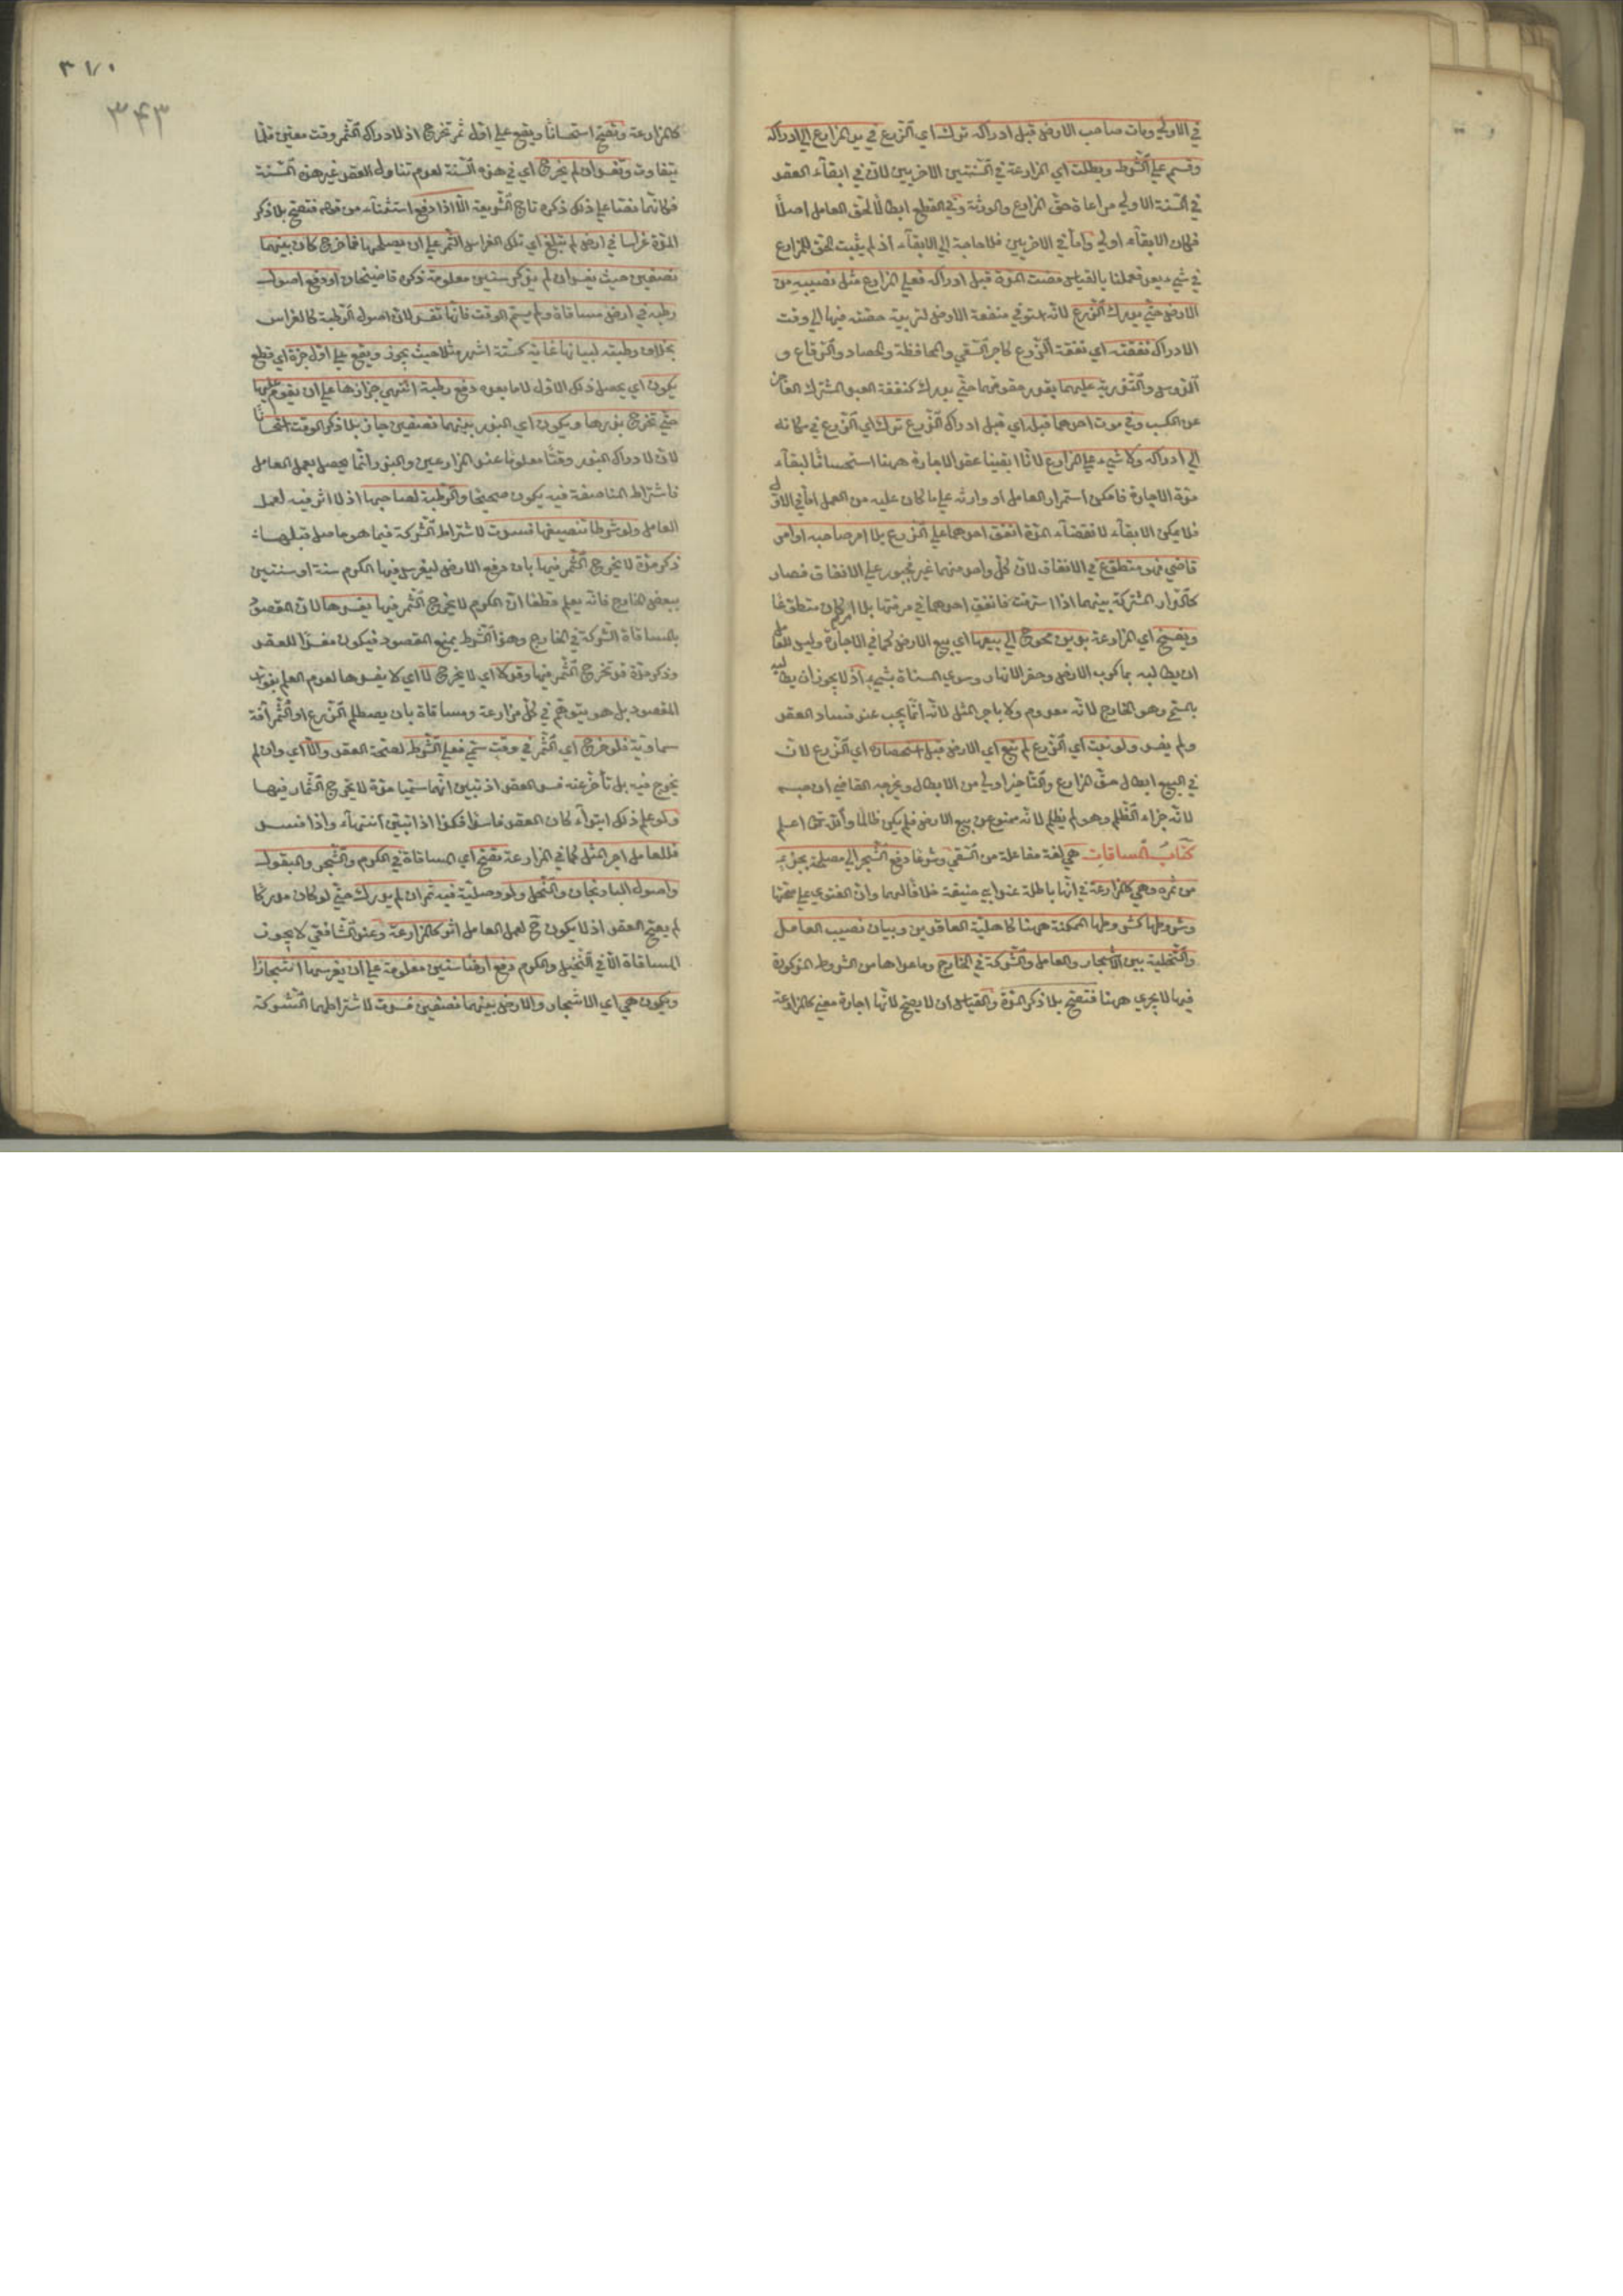 في الاولي ومات صاحب الارض قبل ادراكه ترك اي الزرع في يد المزارع الي ادراكه
وقسم علي الشرط وبطلت اي المزارعة في السنتين الاخريين لان في ابقاء العقد
في السنة الاولي مراعاة حق المزارع والورثة وفي القطع ابطالا لحق العامل اصلا
فكان الابقاء اولي واما في الاخريين فلا حاجة الي الابقاء اذ لم يثبت الحق للمزارع
في شيء بعد فعملنا بالقياس مضت المدة قبل ادراكه فعلي المزارع مثل نصيبه من
الارض حتي يدرك الزرع لانه استوفي منفعة الارض لتربية حصته فيها الي وقت
الادراك نفقته اي نفقة الزرع كاجر السقي والمحافظة والحصاد والرفاع و
الدوس والتذرية عليهما بقدر حقوقهما حتي يدرك كنفقة العبد المشترك العاجز
عن الكسب وفي موت احدهما قبل اي قبل ادراك الزرع ترك اي الزرع في مكانه
الي ادراكه ولا شيء علي المزارع لانا ابقينا عقد الاجارة ههنا استحسانا لبقاء
مدة الاجارة فامكن استمرار العامل او وارثه علي ما كان عليه من العمل اما في الاول
فلا يمكن الابقاء لانقضاء المدة انفق احدهما علي الزرع بلا امر صاحبه او امر
قاضي فهو متطوع في الانفاق لان كل واحد منهما غير مجبور علي الانفاق فصار
كالدار المشتركة بينهما اذا استرمت فانفق احدهما في مرمتها بلا امر كان متطوعا
ويفسخ اي المزارعة بدين محوج الي بيعها اي بيع الارض كما في الاجارة وليس للعامل
ان يطالبه بما كرب الارض وحفر الانهار وسوي المسناة بشيء اذ لا يجوز ان يطالبه
بالمسمي وهو الخارج لانه معدوم ولا باجر المثل لانه انما يجب عند فساد العقد
ولم يفسد ولو نبت اي الزرع لم تبع اي الارض قبل استحصاده اي الزرع لان
في البيع ابطال حق المزارع والتاخير اولي من الابطال ويخرجه القاضي ان حبسه
لانه جزاء الظلم وهو لم يظلم لانه ممنوع عن بيع الارض فلم يكن ظالما والله تعالى اعلم
كتاب المساقات هي لغة مفاعلة من السقي وشرعا دفع الشجر الي مصلحه بجزء
من ثمره وهي كالمزارعة في انها باطلة عند ابي حنيفة خلافا لهما وان الفتوي علي صحتها
وشروطها كشروطها الممكنة ههنا كاهلية العاقدين وبيان نصيب العامل
والتخلية بين الاشجار والعامل والشركة في الخارج وما عداها من الشروط المذكورة
فيها لا يجري ههنا فتصح بلا ذكر المدة والقياس ان لا يصح لانها اجارة معني كالمزارعة
٣٧٠
٣٤٣
كالمزارعة وتصح استحسانا ويقع علي اول ثمر تخرج اذ لادراك الثمر وقت معين قلما
يتفاوت وتفسد ان لم يخرج اي في هذه السنة لعدم تناول العقد غير هذه السنة
فكانما نصا علي ذلك ذكره تاج الشريعة الا اذا دفع استثناء من قوله فتصح بلا ذكر
المدة غراسا في ارض لم تبلغ اي تلك الغراس الثمر علي ان يصلحها فما خرج كان بينهما
نصفين حيث يفسد ان لم يذكر سنين معلومة ذكره قاضيخان او دفع اصول
رطبة في ارض مساقاة ولم يسم الوقت فانها تفسد لان اصول الرطبة كالغراس
بخلاف رطبة لبيانها غاية كستة اشهر مثلا حيث يجوز ويقع علي اول جزة اي قطع
يكون اي يحصل ذلك الاول لا ما بعده دفع رطبة انتهي جزازها علي ان يقوم عليها
حتي تخرج بذرها ويكون اي البذر بينهما نصفين جاز بلا ذكر الوقت استحسانا
لان لادراك البذر وقتا معلوما عند المزارعين والبذر انما يحصل بعمل العامل
فاشتراط المناصفة فيه يكون صحيحا والرطبة لصاحبها اذ لا اثر فيه لعمل
العامل ولو شرطا تنصيفها فسدت لاشتراط الشركة فيما هو حاصل قبلها
ذكر مدة لا يخرج الثمر فيها بان دفع الارض ليغرس فيها الكرم سنة او سنتين
ببعض الخارج فانه يعلم قطعا ان الكرم لا يخرج الثمر فيها يفسدها لان المقصود
بالمساقاة الشركة في الخارج وهذا الشرط يمنع المقصود فيكون مفسدا للعقد
وذكر مدة قد تخرج الثمر فيها وقد لا اي لا يخرج لا اي لا يفسدها لعدم العلم بفوت
المقصود بل هو يتوهم في كل مزارعة ومساقاة بان يصطلم الزرع او الثمر آفة
سماوية فلو خرج اي الثمر في وقت سمي فعلي الشرط لصحة العقد والا اي وان لم
يخرج فيه بل تأخر عنه فسد العقد اذ تبين انهما سميا مدة لا تخرج الثمار فيها
ولو علم ذلك ابتداء كان العقد فاسدا فكذا اذا تبين انتهاء واذا فسد
فللعامل اجر المثل كما في المزارعة تصح اي المساقاة في الكرم والشجر والبقول
واصول الباذنجان والنخل ولو وصلية فيه ثمر ان لم يدرك حتي لو كان مدركا
لم يصح العقد اذ لا يكون ح لعمل العامل اثر كالمزارعة وعند الشافعي لا يجوز
المساقاة الا في النخيل والكرم دفع ارضا سنين معلومة علي ان يغرسها اشجارا
ويكون هي اي الاشجار والارض بينهما نصفين فسدت لاشتراطهما الشركة